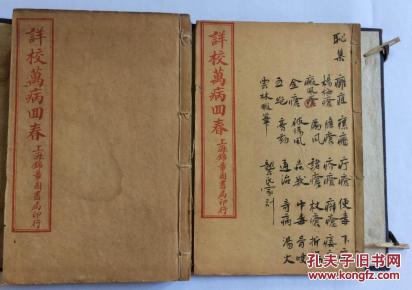 詳校萬病回春
上海錦章圖書局印行
詳校萬病回春
上海錦章圖書局印行
集
癰疽 瘰癧 疔瘡 便毒 下疳
楊梅瘡 臁瘡 疥瘡 癬瘡
癜風 癘風 諸瘡 杖瘡 折傷
金瘡 破傷風 中毒 骨哽
五絕 膏藥 通治 奇病 湯火
雲林暇筆 龔氏家訓